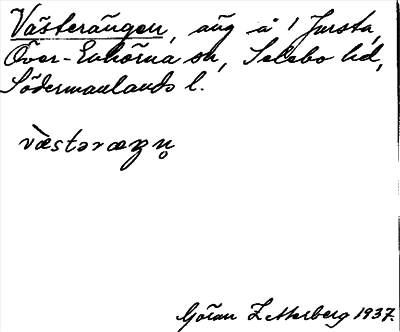 Västerängen, äng å 1 Jursta,
Över-Enhörna sn, Selebo hd,
Södermanlands l.
væ̀stəræŋn̥
Göran Zetterberg 1937.